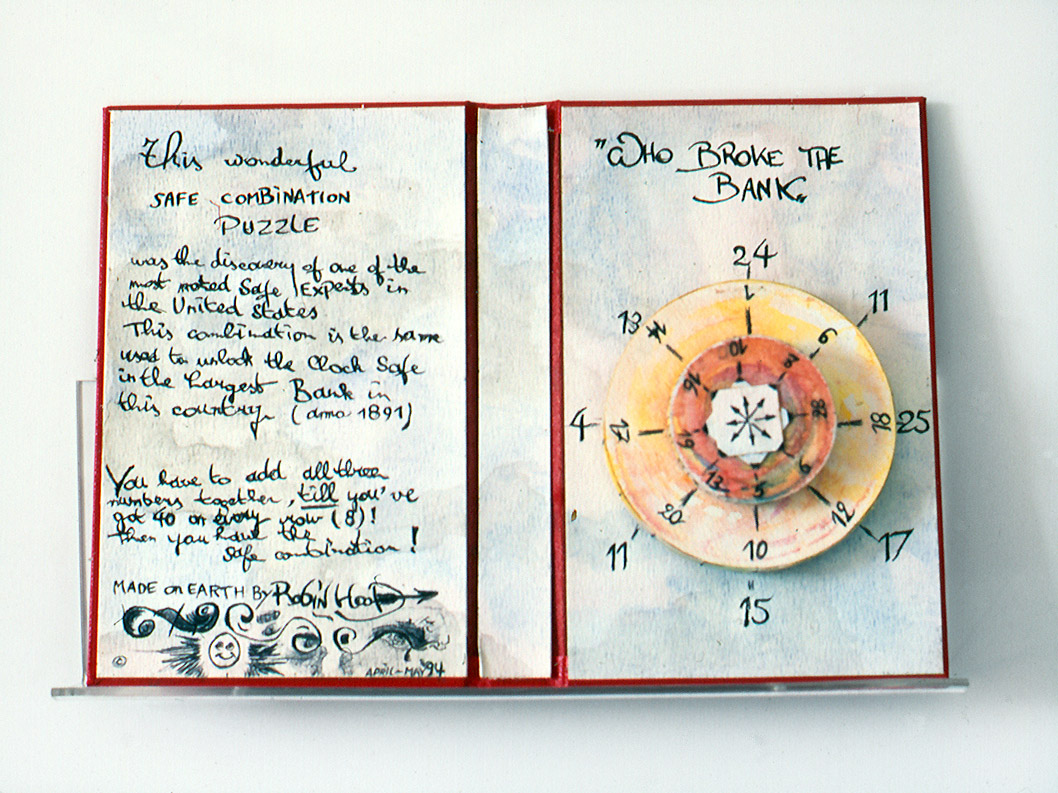 This wonderful
SAFE COMBINATION
PUZZLE
was the discovery of one of the
most noted Safe Experts in
the United States
This combination is the same
used to unlock the Clock Safe
in the Largest Bank in
this country. (anno 1891)
You have to add all three
numbers together, till you've
got 40 on every row (8)!
then you have the
safe combination!
MADE on EARTH BY RobiN HooD
©
APRIL-MAY '94
"WHO BROKE THE
BANK"
24
1
13
14
11
6
10
8
16
4
17
19
28
18
25
13
5
6
20
12
11
10
17
15